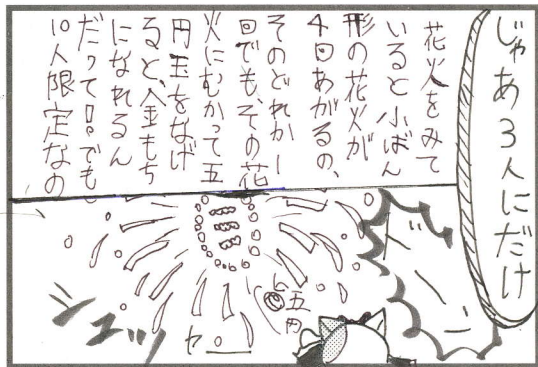 じゃあ3人にだけ
花火をみて
いると小ばん
形の花火が
4回あがるの、
そのどれか一
回でも、その花
火にむかって五
円玉をなげ
ると、金もち
になれるん
だって!!。でも、
10人限定なの
ドーン
五円
ヤー
シュッ